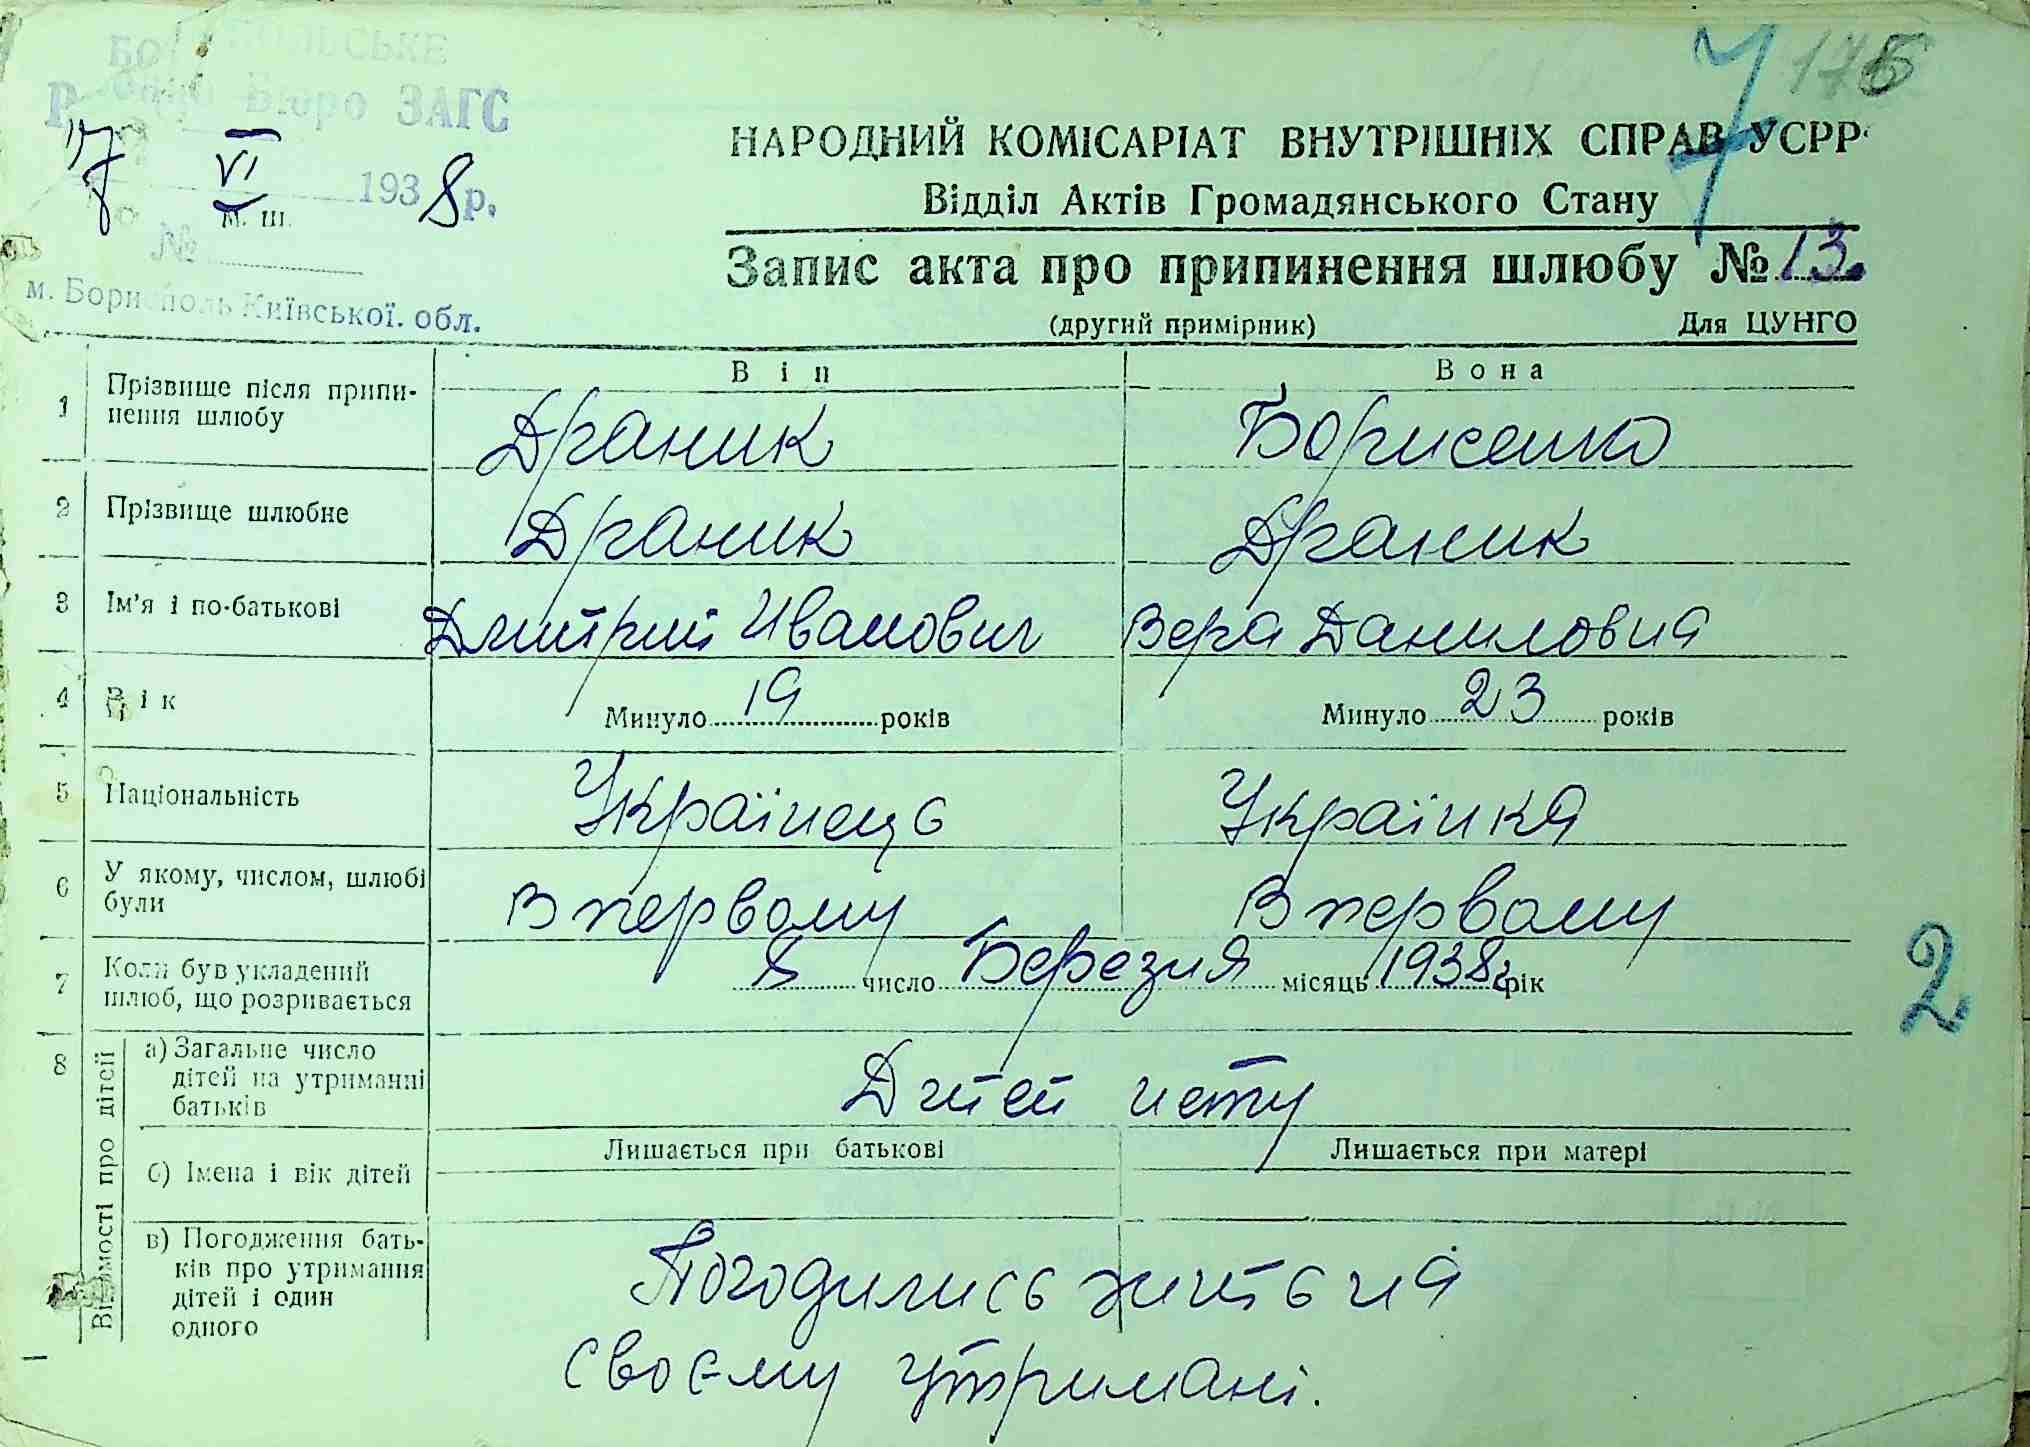 БОРИСПОЛЬСЬКЕ
Районне Бюро ЗАГС
7 VI 1938 р.
м. ш.
№
м. Бориспіль Київської. обл.
7 175
НАРОДНИЙ КОМІСАРІАТ ВНУТРІШНІХ СПРАВ УСРР
Відділ Актів Громадянського Стану
Запис акта про припинення шлюбу № 13.
(другий примірник) Для ЦУНГО
Він Вона
1 Прізвище після припи-
нення шлюбу
Драник Борисенко
2 Прізвище шлюбне Драник Драник
3 Ім'я і по-батькові Дмитрий Иванович Вера Даниловна
4 Вік Минуло 19 років Минуло 23 років
5 Національність Українець Українка
6 У якому, числом, шлюбі
були
В первому В первому
7 Коли був укладений
шлюб, що розривається
8 число Березня місяць 1938 г рік
2
8 Відомості про дітей
а) Загальне число
дітей на утриманні
батьків
Дитей нету
Лишається при батькові Лишається при матері
б) Імена і вік дітей
в) Погодження бать-
ків про утримання
дітей і один
одного
Погодились жить на
своєму утримані.